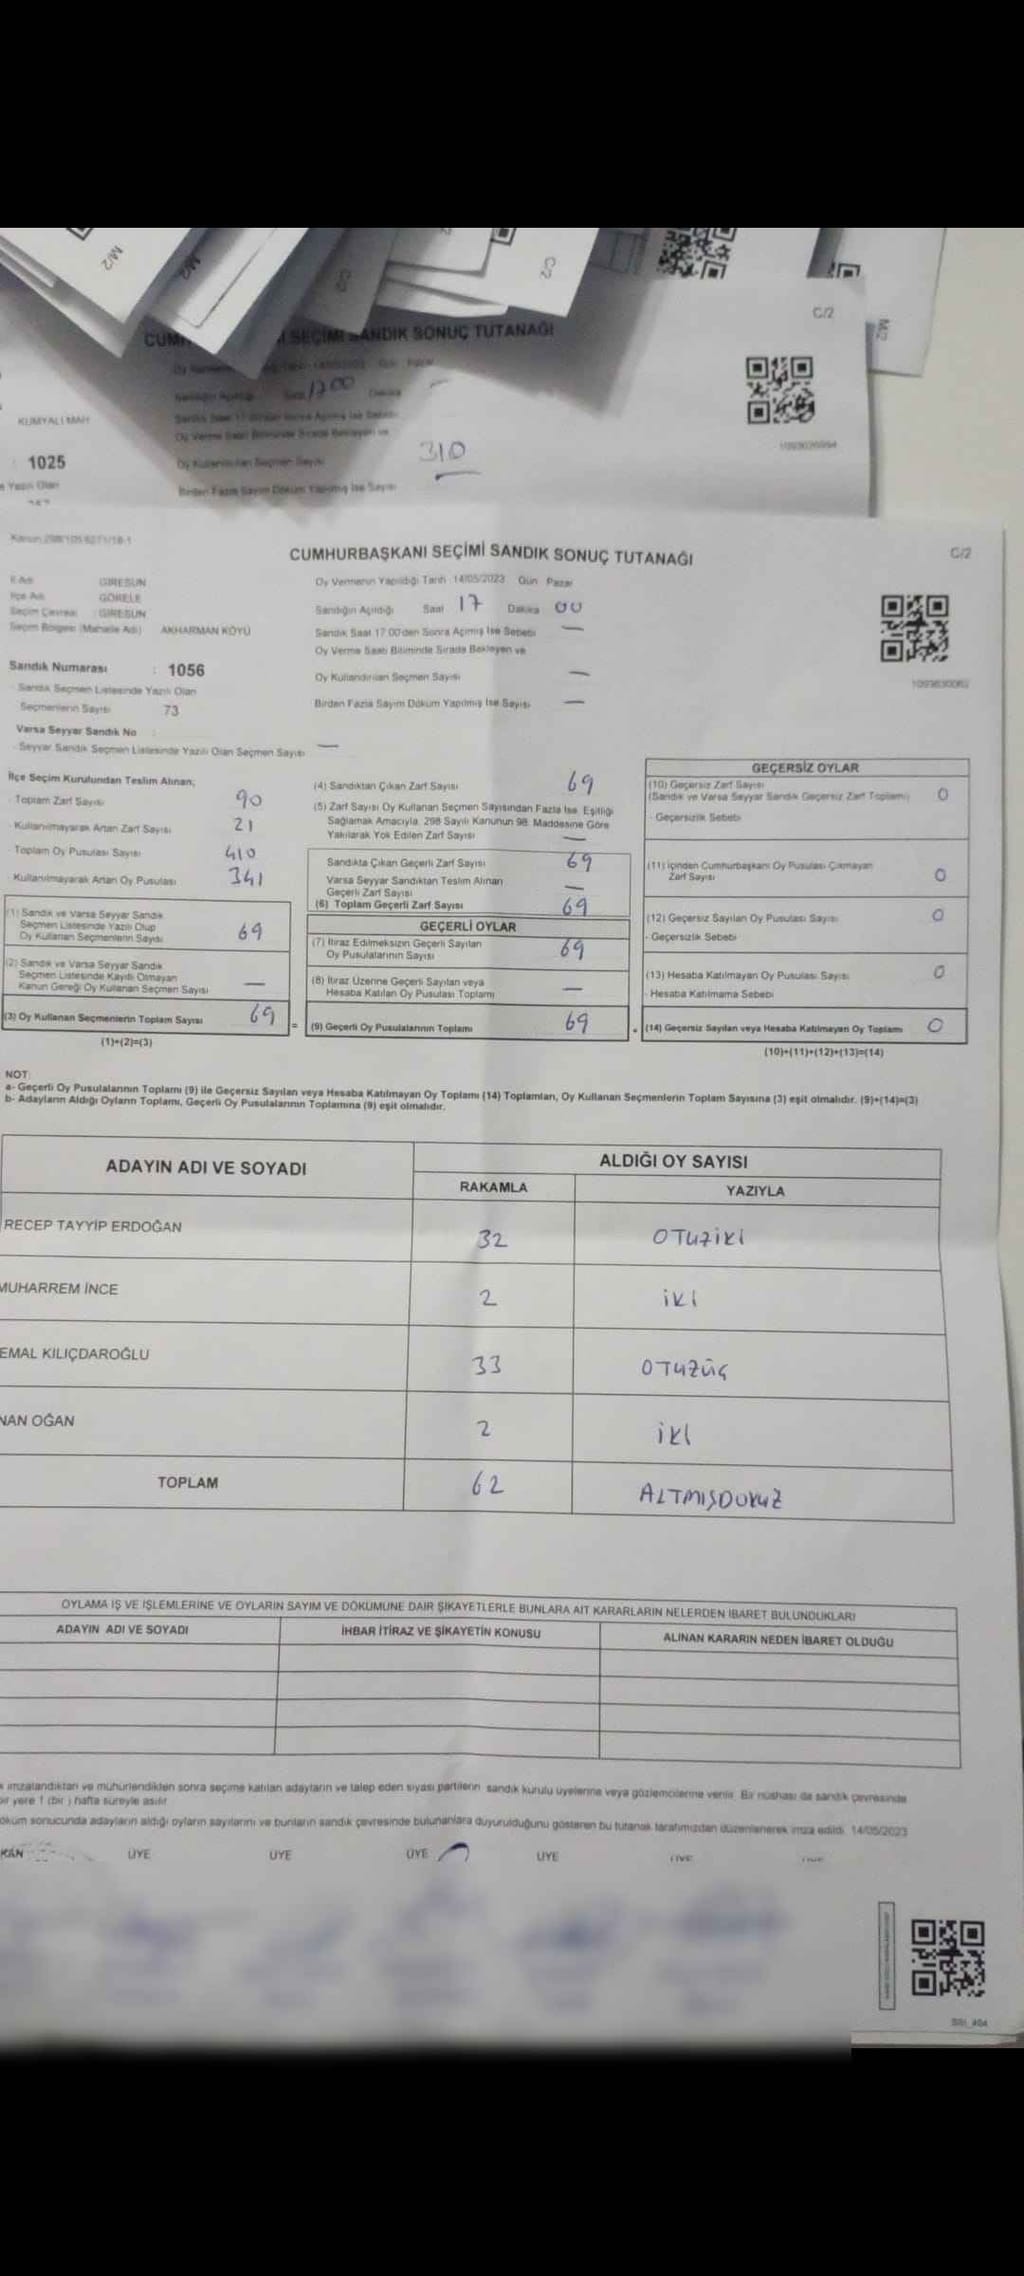 M/2
M/2
C/2
C/2
C/2
M/2
SEÇİMİ SANDIK SONUÇ TUTANAĞI
17 00
KUMYALI MAH
1025
Oy Verme Saati Bitiminde Sırada Bekleyen ve
Oy Kullandırılan Seçmen Sayısı
310
Birden Fazla Sayım Döküm Yapılmış İse Sayısı
CUMHURBAŞKANI SEÇİMİ SANDIK SONUÇ TUTANAĞI
C/2
İl Adı GİRESUN
İlçe Adı GÖRELE
Seçim Çevresi : GİRESUN
Seçim Bölgesi (Mahalle Adı) AKHARMAN KÖYÜ
Sandık Numarası : 1056
- Sandık Seçmen Listesinde Yazılı Olan
Seçmenlerin Sayısı 73
Varsa Seyyar Sandık No :
- Seyyar Sandık Seçmen Listesinde Yazılı Olan Seçmen Sayısı —
Oy Vermenin Yapıldığı Tarih 14/05/2023 Gün Pazar
Sandığın Açıldığı Saat 17 Dakika 00
Sandık Saat 17:00'den Sonra Açılmış İse Sebebi —
Oy Verme Saati Bitiminde Sırada Bekleyen ve
Oy Kullandırılan Seçmen Sayısı —
Birden Fazla Sayım Döküm Yapılmış İse Sayısı —
İlçe Seçim Kurulundan Teslim Alınan;
- Toplam Zarf Sayısı 90
- Kullanılmayarak Artan Zarf Sayısı 21
- Toplam Oy Pusulası Sayısı 410
- Kullanılmayarak Artan Oy Pusulası 341
(1) Sandık ve Varsa Seyyar Sandık
Seçmen Listesinde Yazılı Olup
Oy Kullanan Seçmenlerin Sayısı 69
(2) Sandık ve Varsa Seyyar Sandık
Seçmen Listesinde Kayıtlı Olmayan
Kanun Gereği Oy Kullanan Seçmen Sayısı —
(3) Oy Kullanan Seçmenlerin Toplam Sayısı 69
(1)+(2)=(3)
(4) Sandıktan Çıkan Zarf Sayısı 69
(5) Zarf Sayısı Oy Kullanan Seçmen Sayısından Fazla İse, Eşitliği
Sağlamak Amacıyla, 298 Sayılı Kanunun 98. Maddesine Göre
Yakılarak Yok Edilen Zarf Sayısı —
Sandıkta Çıkan Geçerli Zarf Sayısı 69
Varsa Seyyar Sandıktan Teslim Alınan
Geçerli Zarf Sayısı —
(6) Toplam Geçerli Zarf Sayısı 69
GEÇERLİ OYLAR
(7) İtiraz Edilmeksizin Geçerli Sayılan
Oy Pusulalarının Sayısı 69
(8) İtiraz Üzerine Geçerli Sayılan veya
Hesaba Katılan Oy Pusulası Toplamı —
= (9) Geçerli Oy Pusulalarının Toplamı 69
GEÇERSİZ OYLAR
(10) Geçersiz Zarf Sayısı
(Sandık ve Varsa Seyyar Sandık Geçersiz Zarf Toplamı) 0
- Geçersizlik Sebebi
(11) İçinden Cumhurbaşkanı Oy Pusulası Çıkmayan
Zarf Sayısı 0
(12) Geçersiz Sayılan Oy Pusulası Sayısı 0
- Geçersizlik Sebebi
(13) Hesaba Katılmayan Oy Pusulası Sayısı 0
- Hesaba Katılmama Sebebi
+ (14) Geçersiz Sayılan veya Hesaba Katılmayan Oy Toplamı 0
(10)+(11)+(12)+(13)=(14)
NOT:
a- Geçerli Oy Pusulalarının Toplamı (9) ile Geçersiz Sayılan veya Hesaba Katılmayan Oy Toplamı (14) Toplamları, Oy Kullanan Seçmenlerin Toplam Sayısına (3) eşit olmalıdır. (9)+(14)=(3)
b- Adayların Aldığı Oyların Toplamı, Geçerli Oy Pusulalarının Toplamına (9) eşit olmalıdır.
ADAYIN ADI VE SOYADI ALDIĞI OY SAYISI
RAKAMLA YAZIYLA
RECEP TAYYİP ERDOĞAN 32 OTUZİKİ
MUHARREM İNCE 2 İKİ
EMAL KILIÇDAROĞLU 33 OTUZÜÇ
NAN OĞAN 2 İKİ
TOPLAM 62 ALTMIŞDOKUZ
OYLAMA İŞ VE İŞLEMLERİNE VE OYLARIN SAYIM VE DÖKÜMÜNE DAİR ŞİKAYETLERLE BUNLARA AİT KARARLARIN NELERDEN İBARET BULUNDUKLARI
ADAYIN ADI VE SOYADI İHBAR İTİRAZ VE ŞİKAYETİN KONUSU ALINAN KARARIN NEDEN İBARET OLDUĞU
imzalandıktan ve mühürlendikten sonra seçime katılan adayların ve talep eden siyasi partilerin sandık kurulu üyelerine veya gözlemcilerine verilir. Bir nüshası da sandık çevresinde
bir yere 1 (bir ) hafta süreyle asılır.
döküm sonucunda adayların aldığı oyların sayılarını ve bunların sandık çevresinde bulunanlara duyurulduğunu gösteren bu tutanak tarafımızdan düzenlenerek imza edildi. 14/05/2023
KAN ÜYE ÜYE ÜYE ÜYE